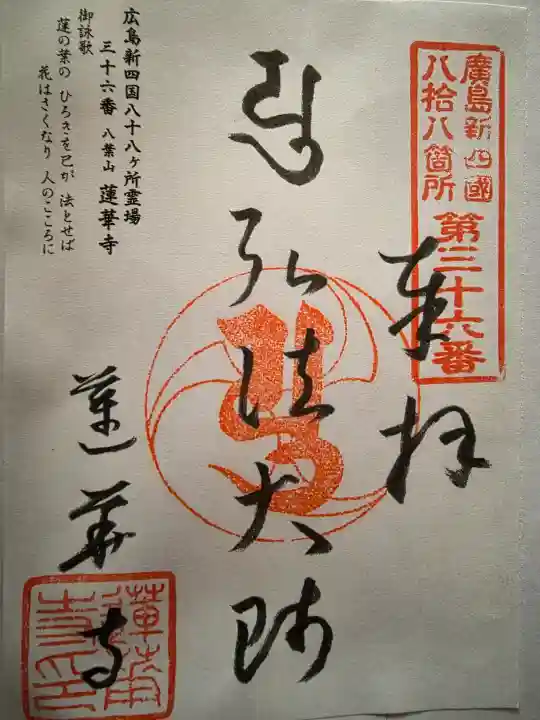 廣島新四國
八拾八箇所
第三十六番
奉拝
弘法大師
広島新四国八十八ヶ所霊場
三十六番 八葉山 蓮華寺
御詠歌
蓮の葉の ひろきを己が 法とせば
花はさくなり 人のこころに
蓮華寺
蓮華
寺印